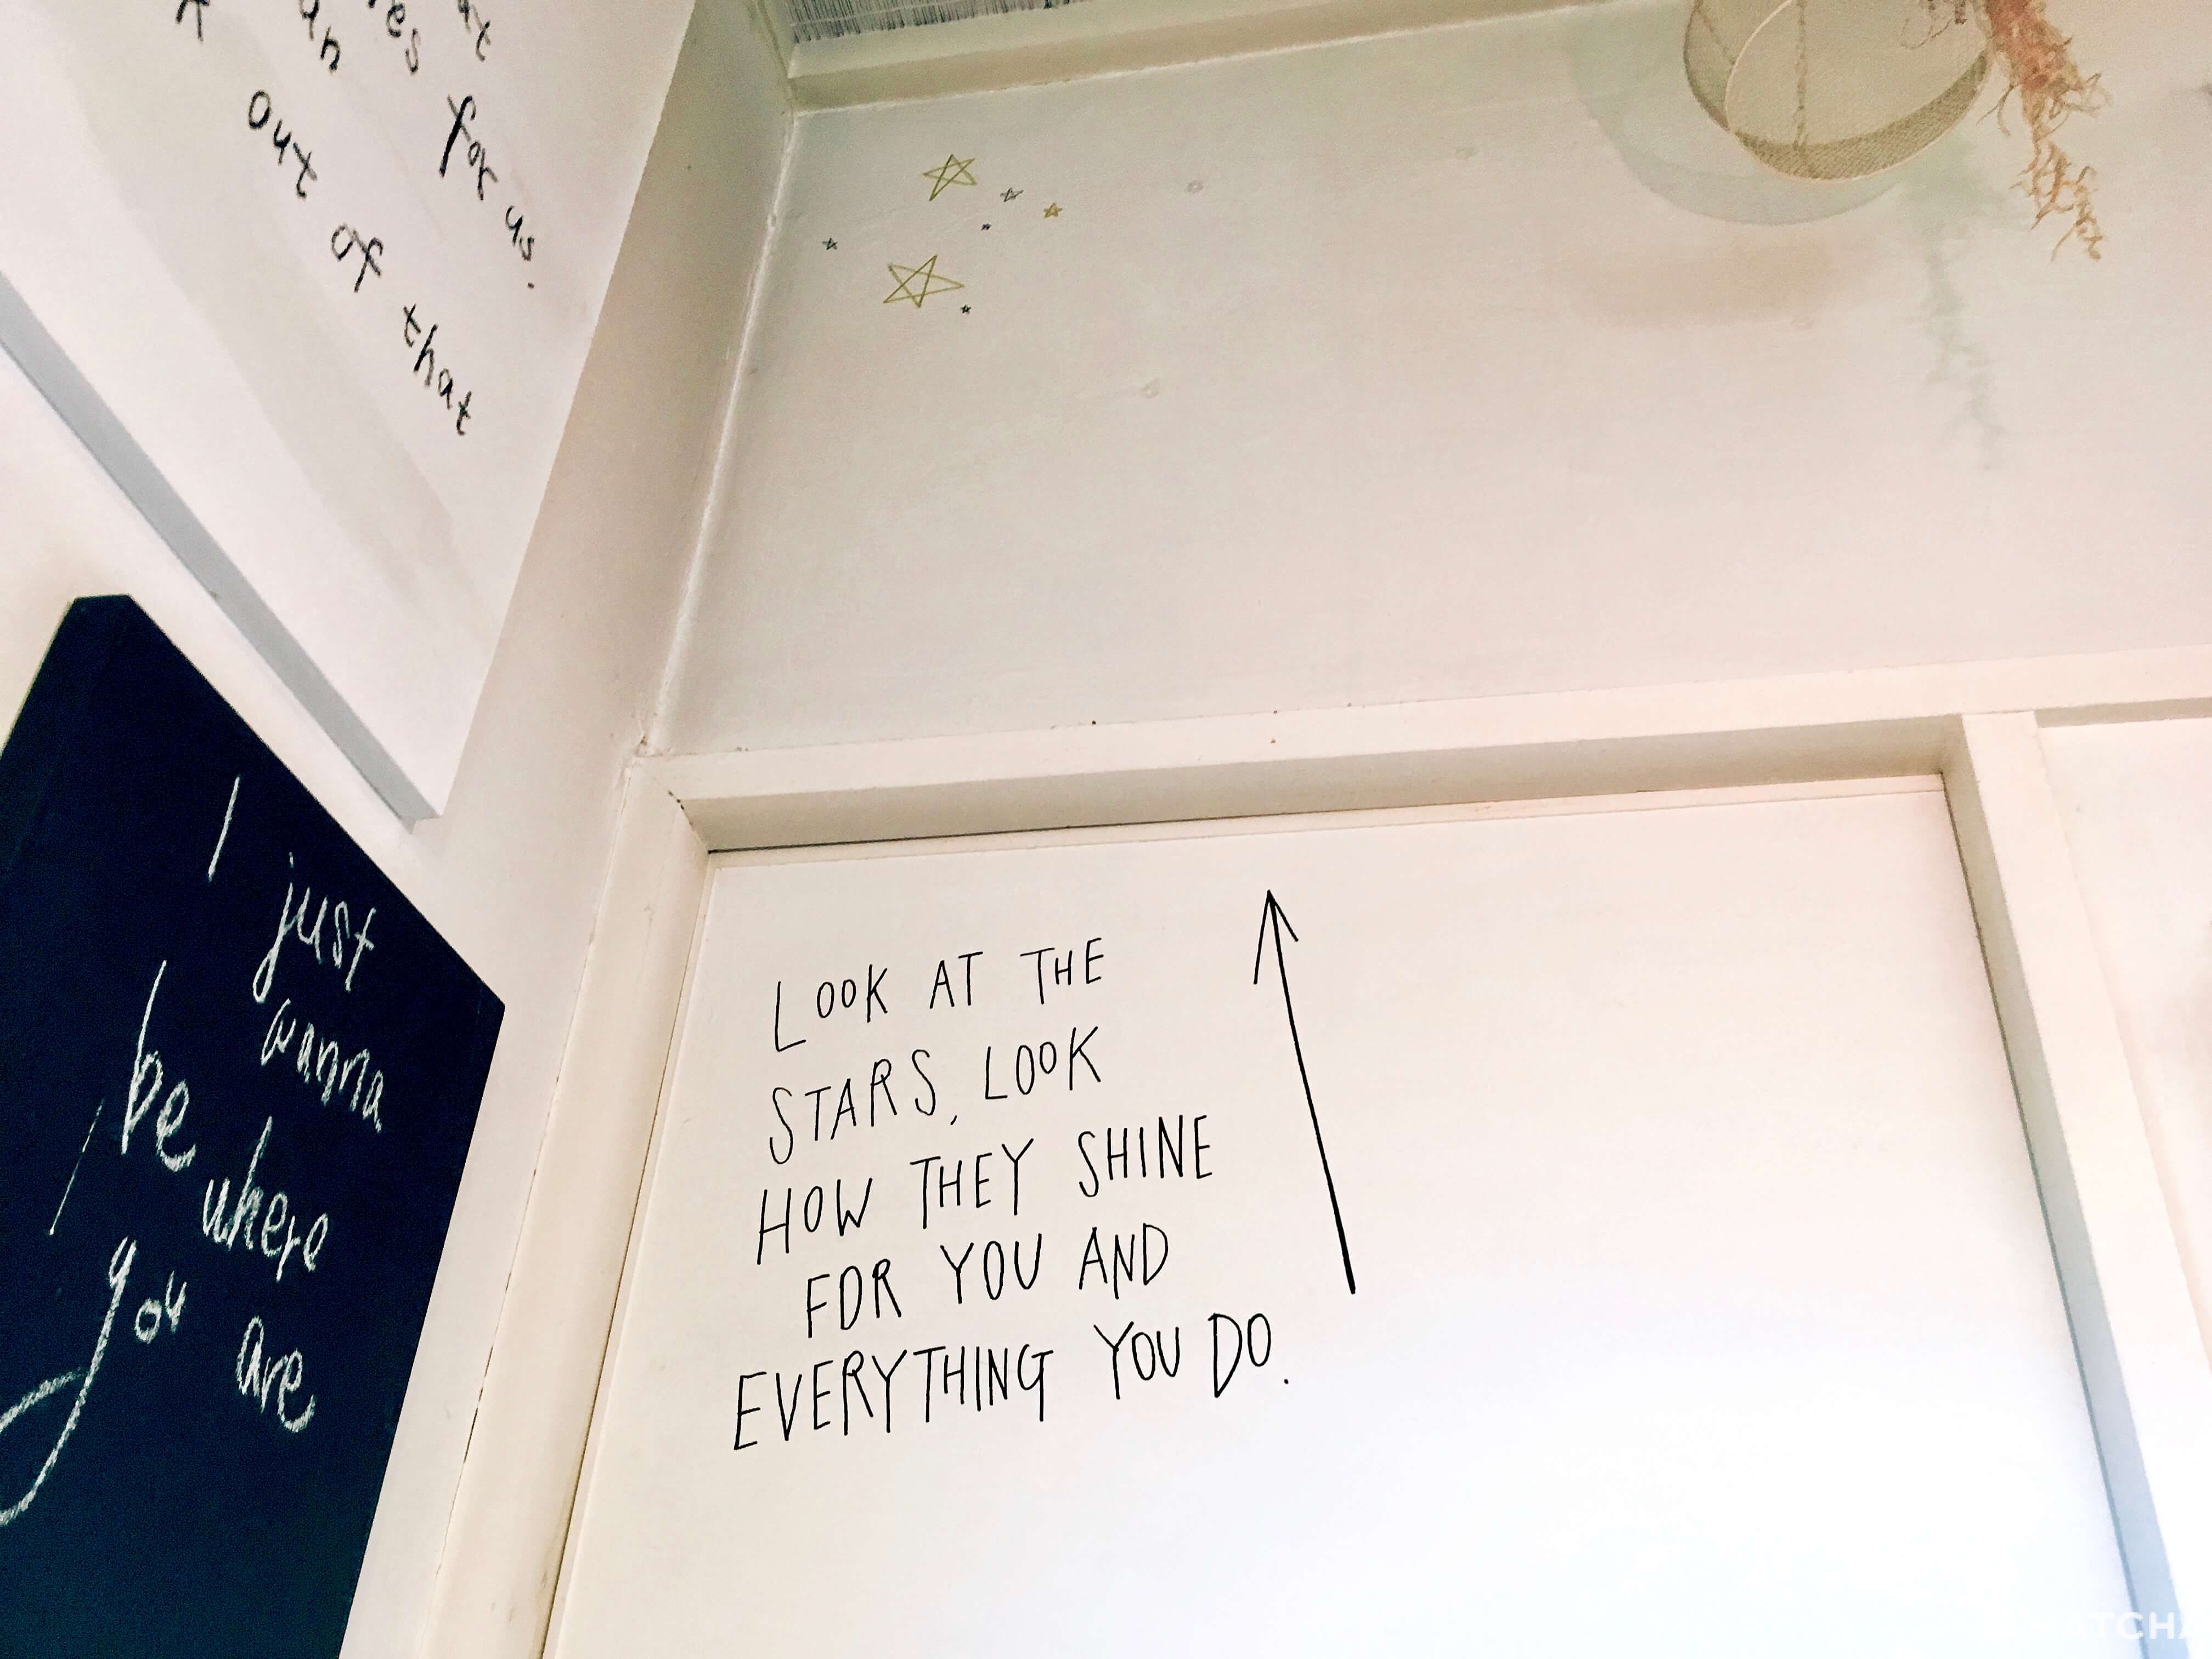 for us.
out of that
I just
wanna
be where
you are
LOOK AT THE
STARS, LOOK
HOW THEY SHINE
FOR YOU AND
EVERYTHING YOU DO.